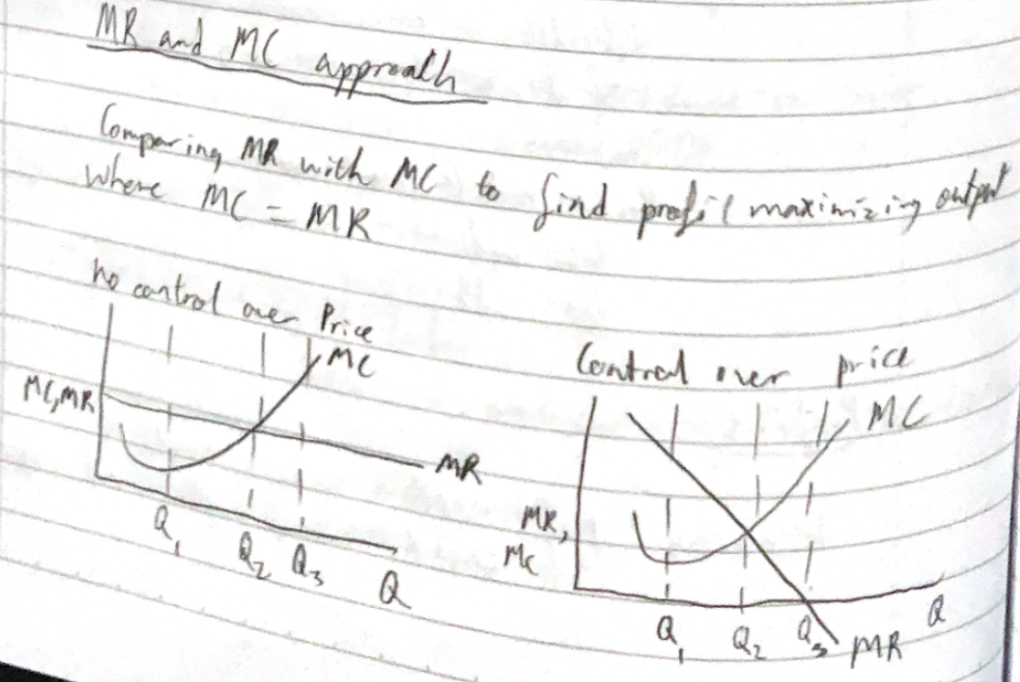 MR and MC approach
Comparing MR with MC to find profit maximizing output
where MC = MR
no control over Price
MC
MC,MR
MR
Q1
Q2
Q3
Q
Control over price
MC
MR,
MC
Q1
Q2
Q3
MR
Q